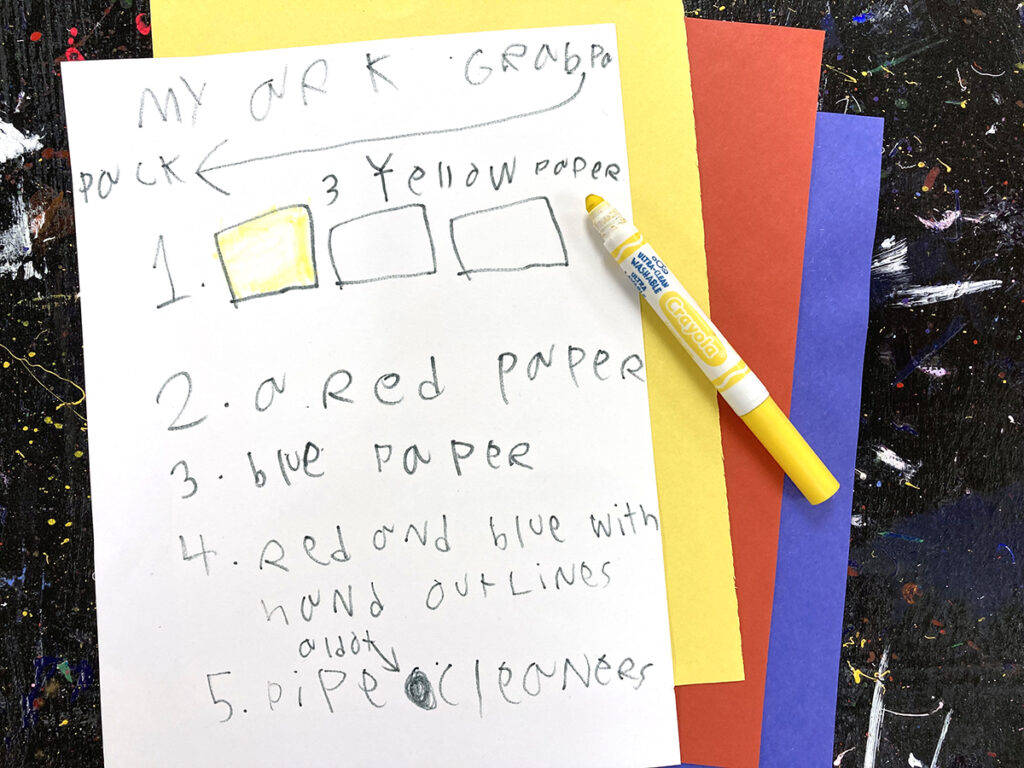 MY aRK GRabPa
Pack
3 Yellow paper
1.
2. a Red paper
3 blue paper
4. Red and blue with
hand outlines
aldot
5. pipe cleaners
ULTRA-CLEAN
WASHABLE
ULTRA
Crayola